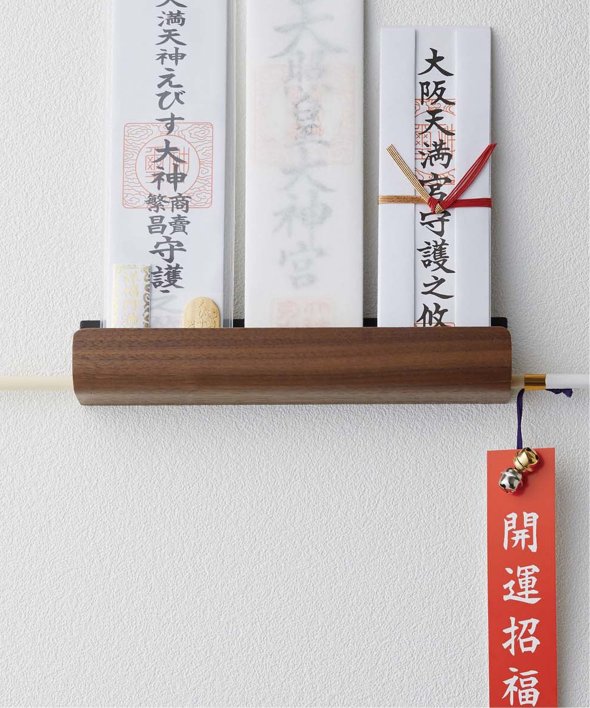 天満天神えびす大神
商賣
繁昌
守護
天照皇大神宮
大阪天満宮守護之攸
開運招福